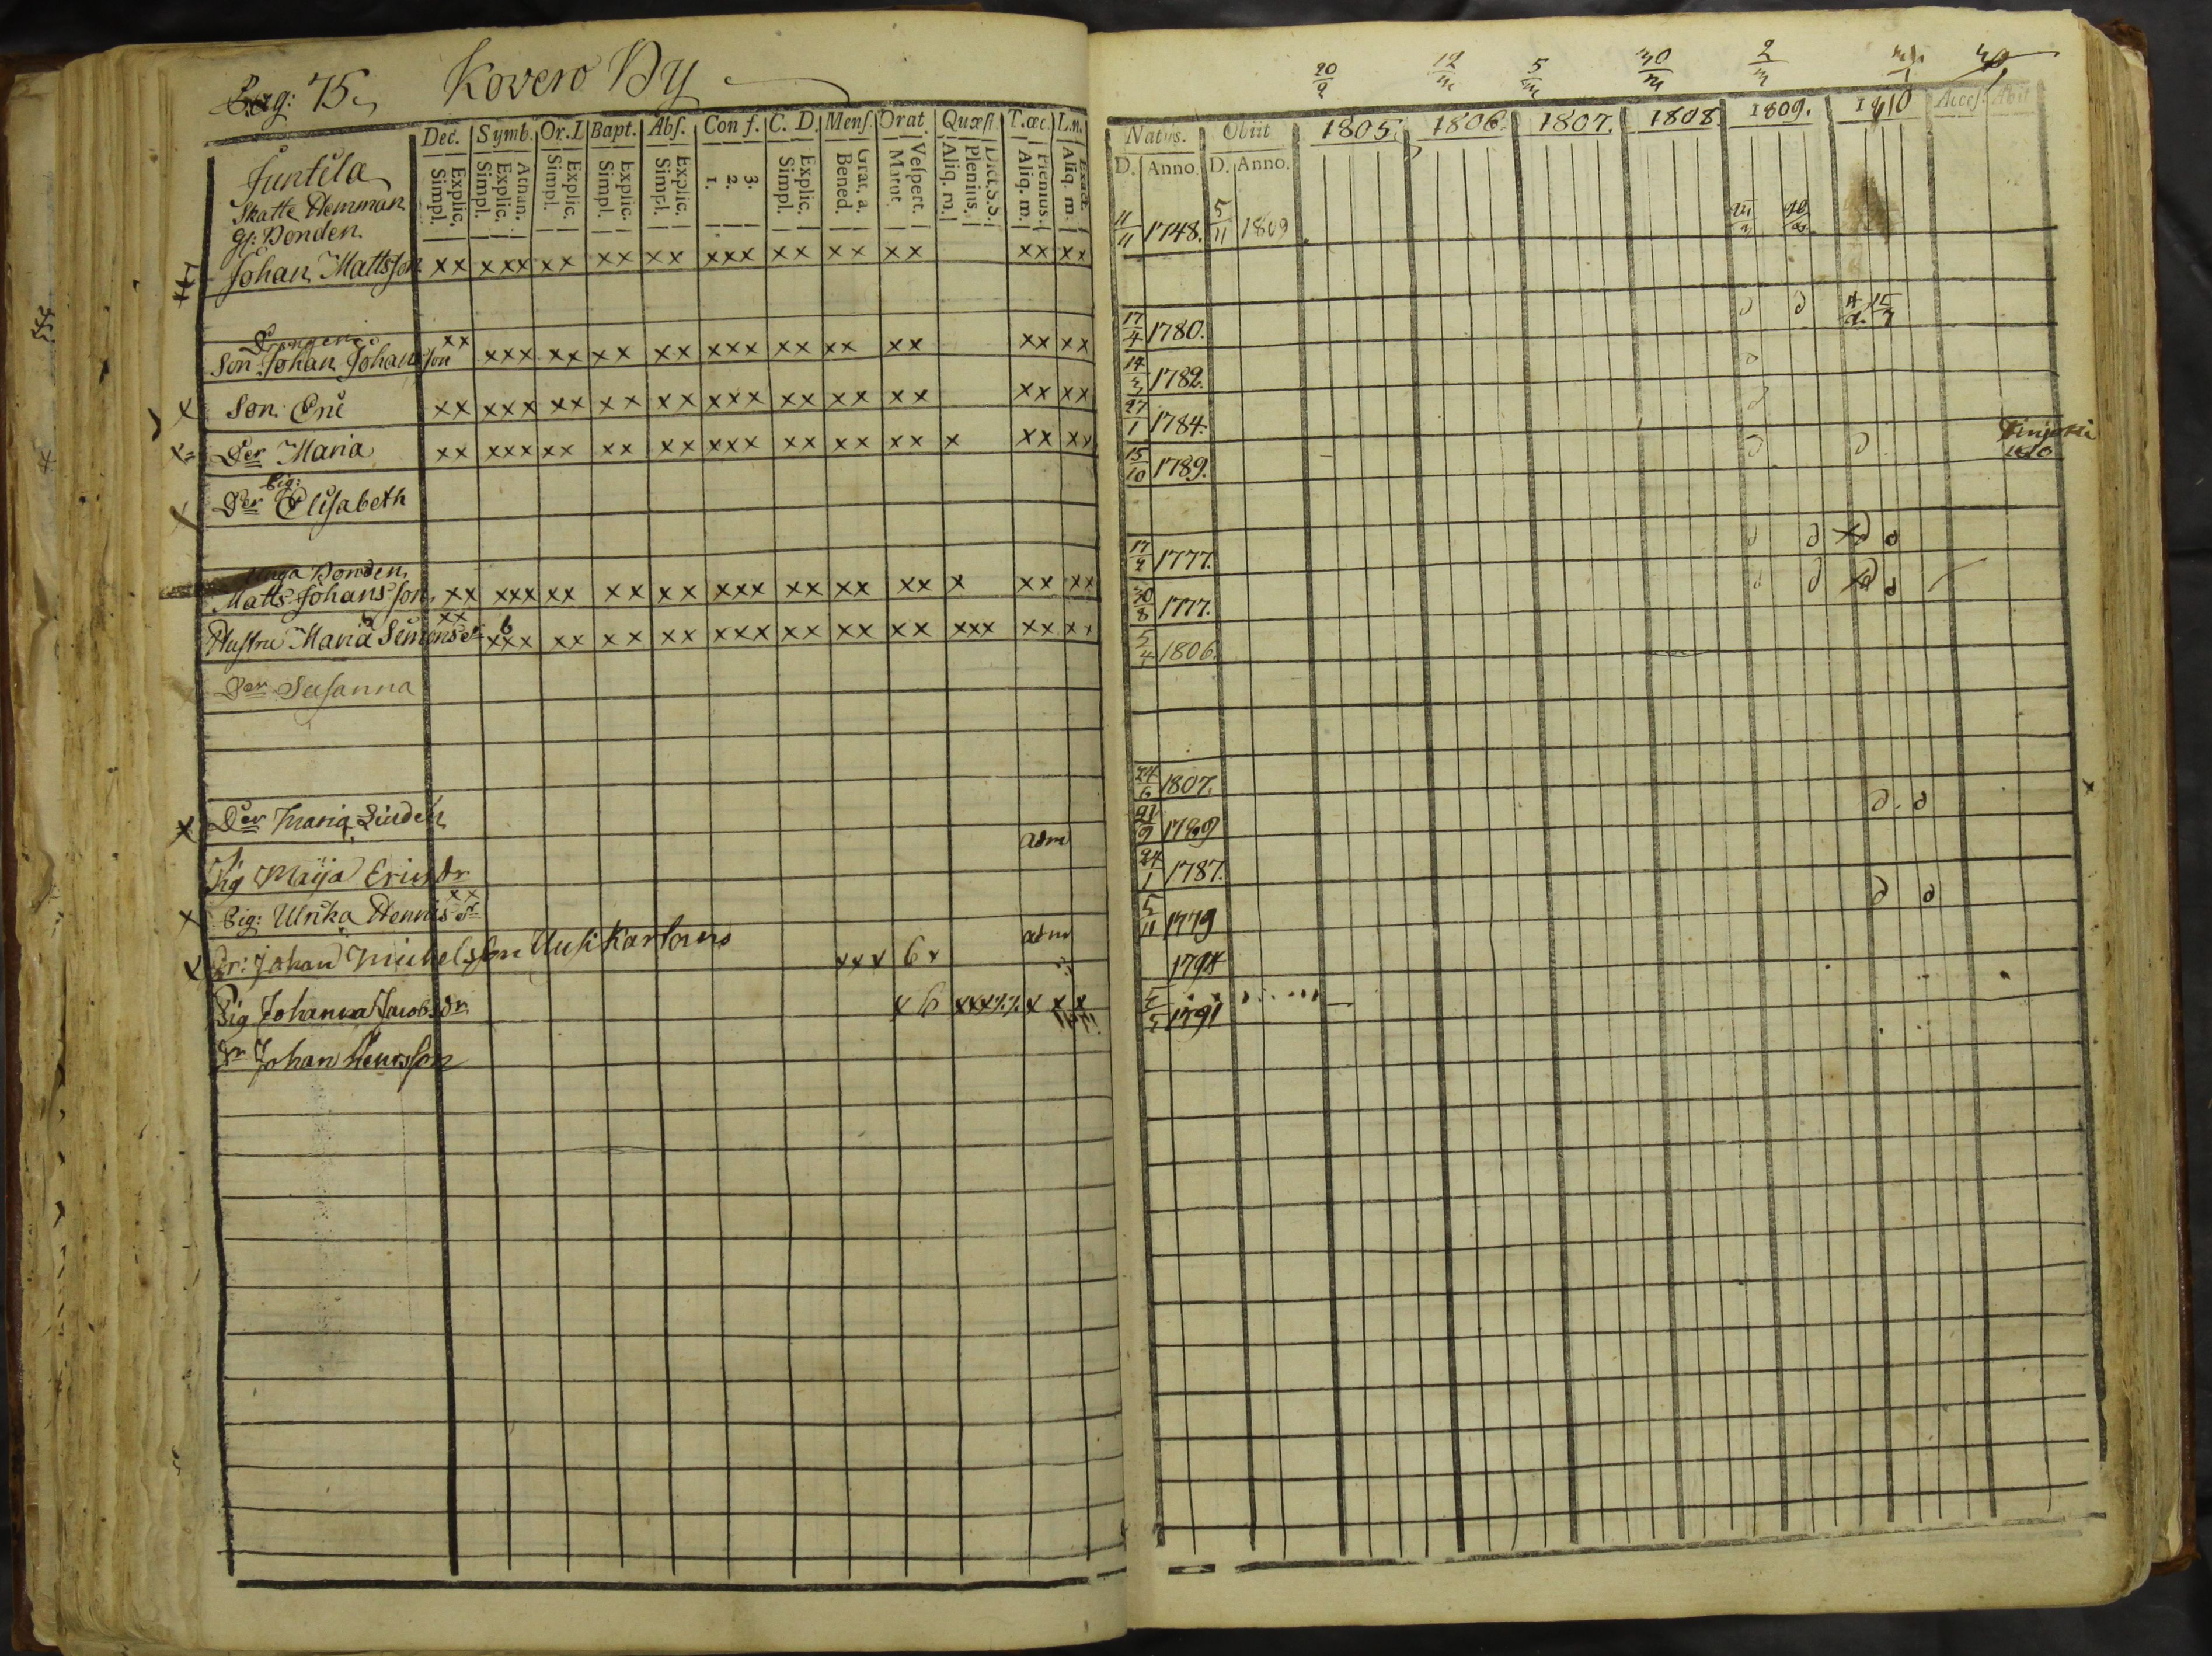 Pag: 75. Kovero By
20/2 12/m 5/m 30/m 2/m
Dec. Symb. Or. I Bapt. Abs. Conf. C. D. Mens. Orat. Quæst. T. œc. L. n.
Natus. Obiit 1805. 1806. 1807. 1808. 1809. 1810 Acces. Abit
Explic. Simpl. Athan. Explic. Simpl. Explic. Simpl. Explic. Simpl. Explic. Simpl. 3. 2. 1. Explic. Simpl. Grat. a. Bened. Vespert. Matut. Dict. S. S. Plenius. Aliq. m. Plenius. Aliq. m. Exact. Aliq. m.
D. Anno. D. Anno.
Juntila
Skatte Hemman
gl: Bonden
Johan Mattsson xx xxx xx xx xx xxx xx xx xx xx xx 11/11 1748. 5/11 1809
Drängen
Son Johan Johansson xx xxx xx xx xx xxx xx xx xx xx xx 17/4 1780.
Son Eric xx xxx xx xx xx xxx xx xx xx xx xx 14/3 1782.
Der Maria xx xxx xx xx xx xxx xx xx xx x xx xx 27/1 1784.
Pig:
Der Elisabeth 15/10 1789.
Unga Bonden
Matts Johansson xx xxx xx xx xx xxx xx xx xx x xx xx 17/2 1777.
Hustru Maria Simonsdr xx 6 xxx xx xx xx xxx xx xx xx xxx xx xx 30/8 1777.
Der Susanna 5/4 1806.
Der Maria 24/6 1807.
Pig Maija Ericsdr adm 21/9 1789
Pig: Ulrika Hennisdr xx 24/1 1787.
Dr: Johan Michelsson Uusi Kartano xxx 6x adm 5/11 1779
Pig Johanna Jacobsdr x 6 1794
Dr Johan Henrsson 5/5 1791